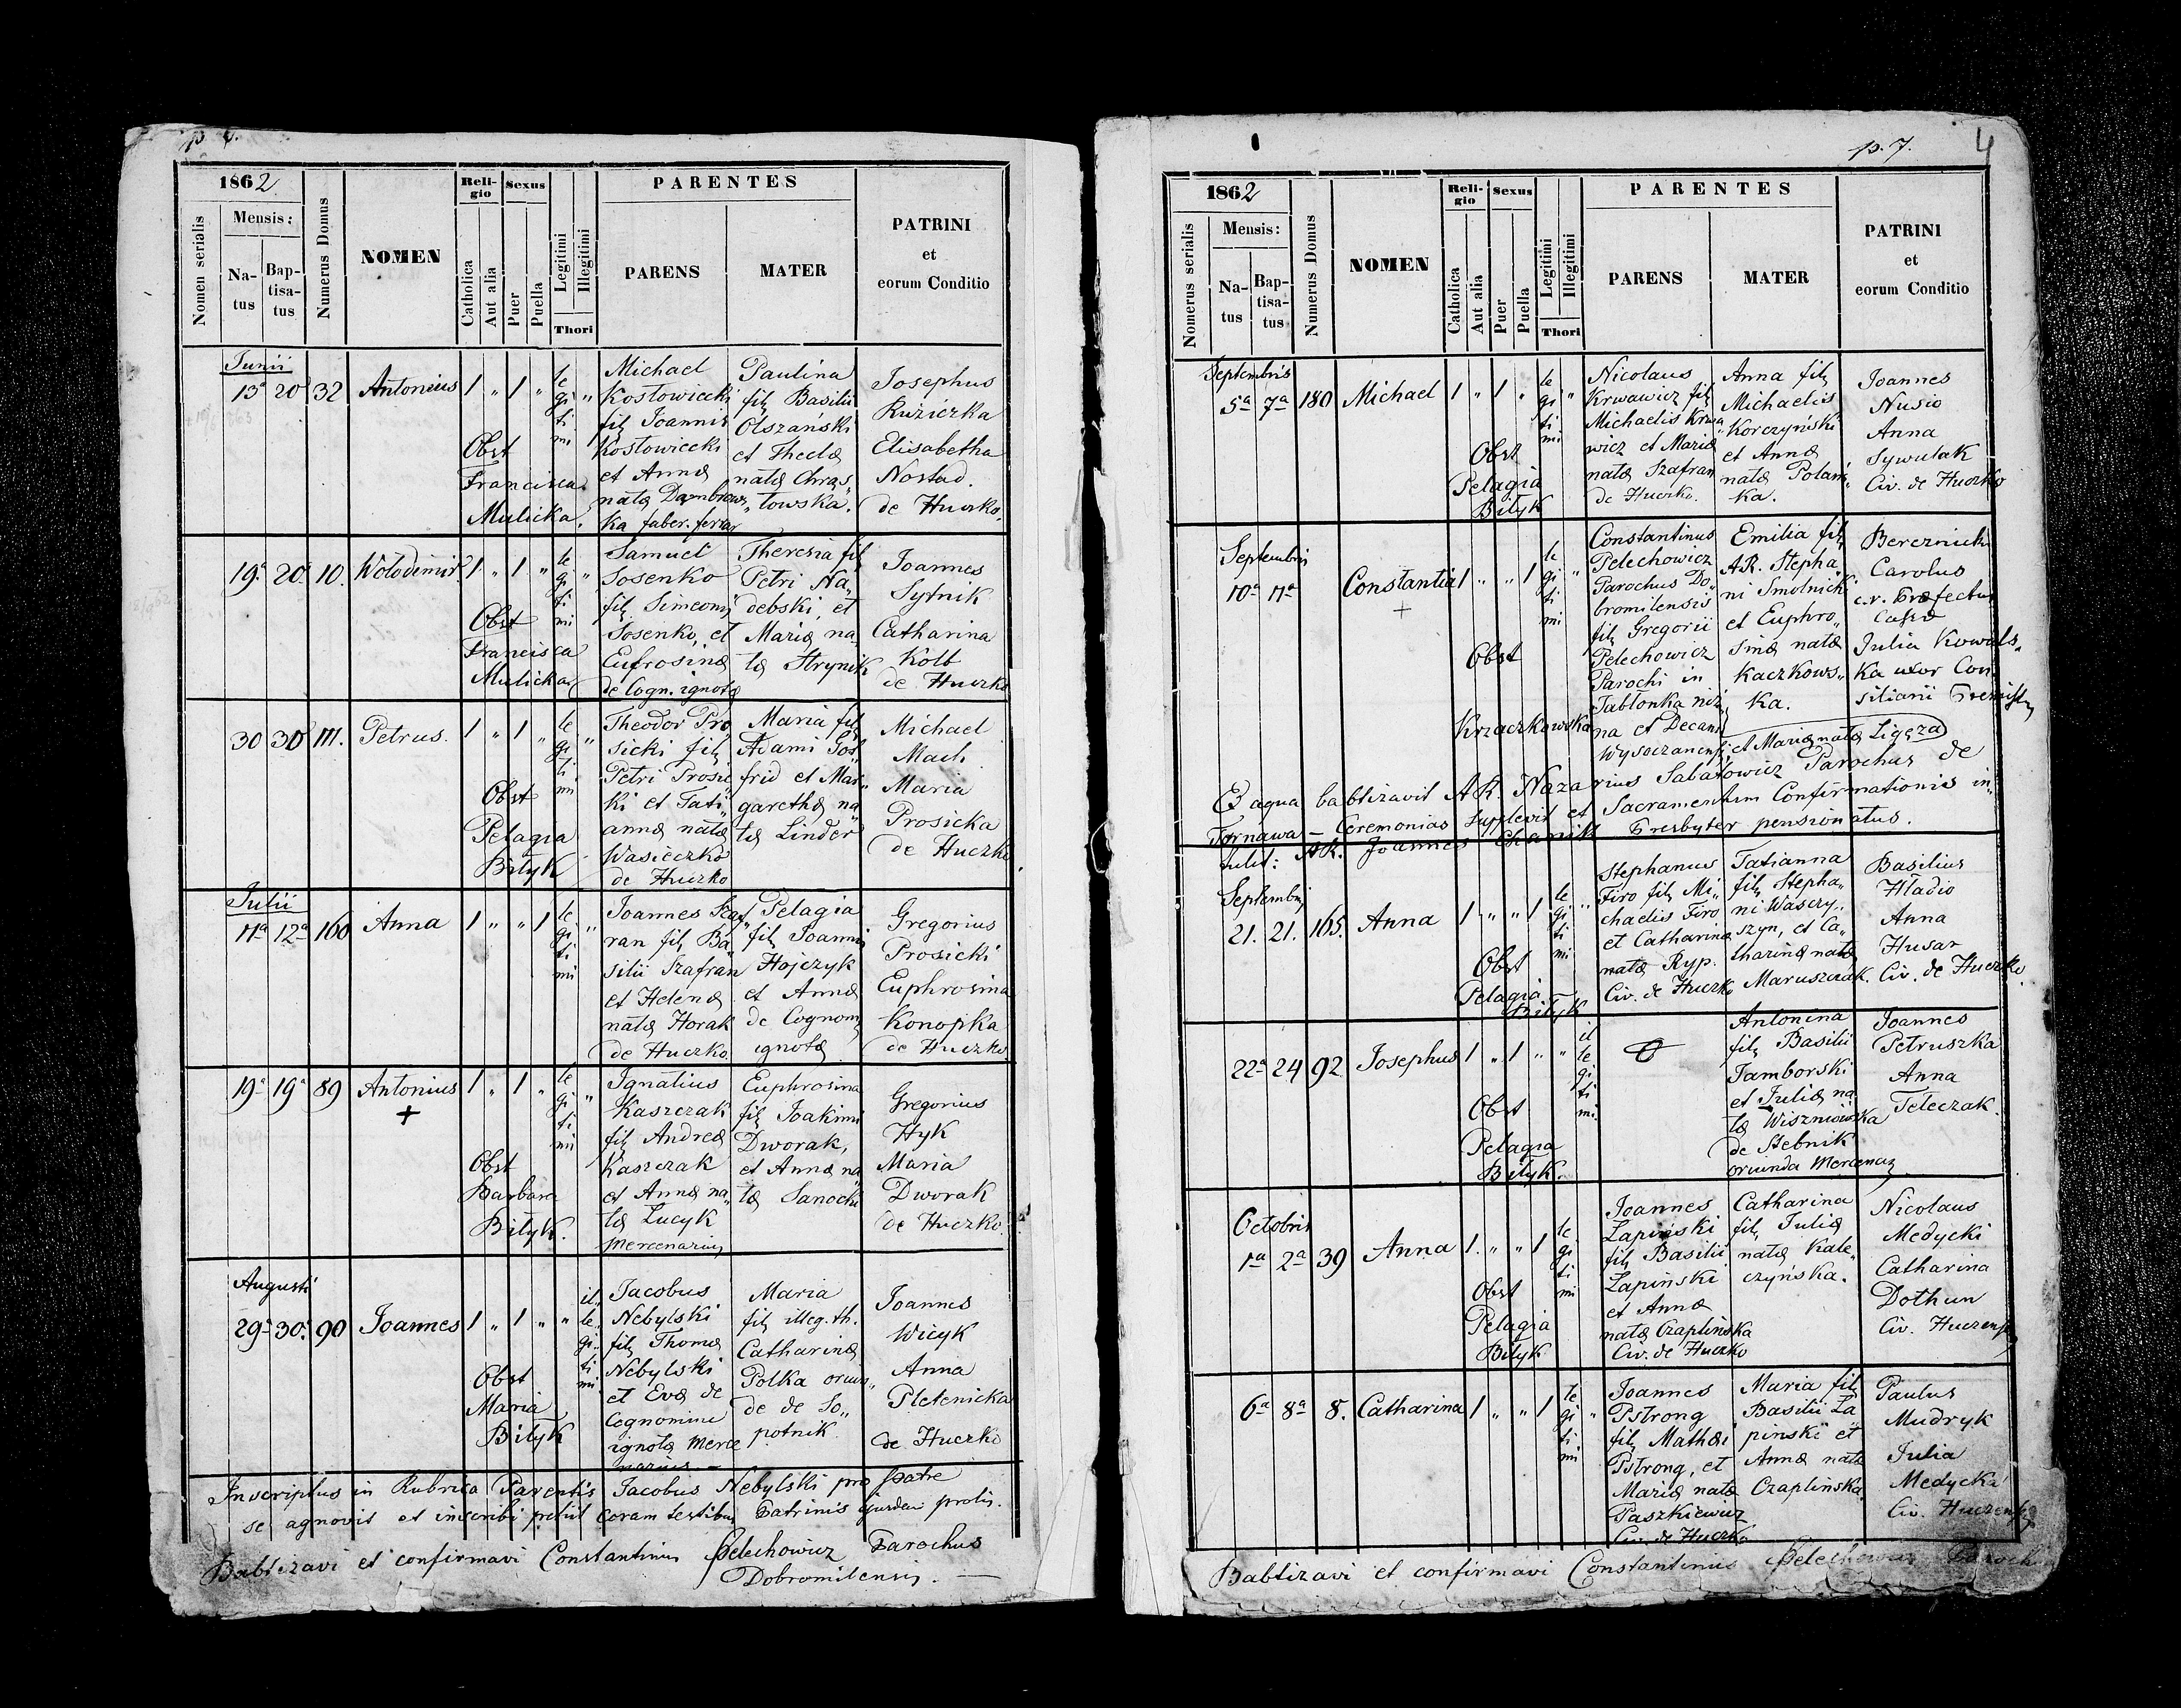 1862
Nomen serialis
Mensis:
Natus
Baptisatus
Numerus Domus
NOMEN
Religio
Catholica
Aut alia
Sexus
Puer
Puella
Legitimi
Illegitimi
Thori
PARENTES
PARENS
MATER
PATRINI
et
eorum Conditio
Junii
13a 20 32 Antonius 1 " 1 "
le
gi
ti
mi
"
Obst
Francisca
Mulicka.
Michael
Kosłowiecki
filz Joannis
Kosłowiecki
et Annæ
natæ Dambrows
ka faber. ferrar
Paulina
filz Basilii
Olszański
et Theclæ
natæ Chras"
towska.
Josephus
Ružiczka
Elisabetha
Nostad.
de Huczko.
19a 20. 10. Wołodimir 1 " 1 "
le
gi
ti
mi
"
Obst
Francisca
Mulicka
Samuel
Sosenko
filz Simeonis
Sosenko, et
Eufrosinæ
de Cogn. ignotæ
Theresia filz
Petri Na"
debski, et
Mariæ na"
tæ Strynik
Joannes
Sytnik
Catharina
Kolb
de Huczko
30 30 111. Petrus. 1 " 1 "
le
gi
ti
mi
"
Obst
Pelagia
Bilyk
Theodor Pro
sicki filz
Petri Prosic
ki et Tati"
annæ natæ
Wasieczko
de Huczko
Maria filz
Adami Gos"
frid et Mar"
garethæ na"
tæ Linder
Michael
Mach
Maria
Prosicka
de Huczko
Julii
11a 12a 160 Anna 1 " " 1
le
gi
ti
mi
"
Joannes Szaf"
ran filz Ba"
silii Szafran
et Helenæ
natæ Horak
de Huczko
Pelagia
filz Joannis
Hojczyk
et Annæ
de Cognom
ignotæ
Gregorius
Prosicki
Euphrosina
Konopka
de Huczko
19a 19a 89 Antonius 1 " 1 "
+
le
gi
ti
mi
"
Obst
Barbara
Bilyk.
Ignatius
Kaszczak
filz Andreæ
Kaszczak
et Annæ na"
tæ Lucyk
Mercenarius
Euphrosina
filz Joakimi
Dworak,
et Annæ na"
tæ Sanocki
Gregorius
Hyk
Maria
Dworak
de Huczko.
Augusti
29a 30. 90 Joannes 1 " 1 " "
il"
le"
gi"
ti
mi
Obst
Maria
Bilyk
Jacobus
Nebylski
filz Thomæ
Nebylski
et Evæ de
Cognomine
ignotæ Merce
narius. —
Maria
filz illeg. th.
Catharinæ
Polka oriun"
de de So"
potnik.
Joannes
Wicyk
Anna
Pletenicka
de Huczko
Inscriptus in Rubrica Parentis Jacobus Nebylski pro patre
se agnovit et inscribi petiit coram testibus Patrinis ejusdem prolis.
Babtizavi et confirmavi Constantinus Pelechowicz Parochus
Dobromilensis. —
p. 7.
4
1862
Nomerus serialis
Mensis:
Natus
Baptisatus
Numerus Domus
NOMEN
Religio
Catholica
Aut alia
Sexus
Puer
Puella
Legitimi
Illegitimi
Thori
PARENTES
PARENS
MATER
PATRINI
et
eorum Conditio
Septembris
5a 7a 180 Michael 1 " 1 "
le
gi
ti
mi
"
Obst
Pelagia
Bilyk
Nicolaus
Krwawicz filz
Michaelis Krwa
wicz et Mariæ
natæ Szafran
de Huczko.
Anna filz
Michaelis
Korczyński
et Annæ
natæ Polań"
ka.
Joannes
Nusio
Anna
Sywulak
Civ. de Huczko
Septembris
10a 11a Constantia 1 " " 1
+
le
gi
ti
mi
"
Obst
Krzaczkowska
Constantinus
Pelechowicz
Parochus Do"
bromilensis
filz Gregorii
Pelechowicz
Parochi in
Jabłonka niż"
na et Decani
Wysoczanensis
Emilia filz
AR. Stepha"
ni Smolnicki
et Euphro"
sinæ natæ
Kaczkows"
ka.
et Mariæ natæ Ligęza
Bereznicki
Carolus
c.r. Præfectus
Julia Kowals"
ka uxor Con"
siliarii
E aqua babtizavit AR. Nazarius Sabatowicz Parochus de
Tornawa — Ceremonias supplevit et Sacramentum Confirmationis in"
tulit: AR. Joannes Presbyter pensionatus.
Septembris
21. 21. 165. Anna 1 " " 1
le
gi
ti
mi
"
Obst
Pelagia —
Bilyk
Stephanus
Firo filz Mi"
chaelis Firo
et Catharinæ
natæ Ryp.
Civ. de Huczko
Tatianna
filz Stepha"
ni Wasczy"
szyn, et Ca"
tharinæ natæ
Maruszczak.
Basilius
Hladio
Anna
Husar
Civ. de Huczko.
22a 24 92 Josephus 1 " 1 " "
il
le
gi
ti
mi
Obst
Pelagia
Bilyk.
Antonina
filz Basilii
Jamborski
et Juliæ na
tæ Wiszniowska
de Stebnik
oriunda Mercenar
Joannes
Petruszka
Anna
Teleczak.
Octobris
1a 2a 39 Anna 1. " " 1
le
gi
ti
mi
Obst
Pelagia
Bilyk
Joannes
Łapiński
filz Basilii
Łapiński
et Annæ
natæ Czaplińska
Civ. de Huczko
Catharina
filz Juliæ
natæ Kale"
czyńska.
Nicolaus
Medycki
Catharina
Dothun
Civ. Huczensis
6a 8a 8. Catharina 1 " " 1
le
gi
ti
mi
"
Joannes
Pstrong
filz Mathæi
Pstrong, et
Mariæ natæ
Paszkiewicz
Civ. de Huczko
Maria filz
Basilii Ła
pinski et
Annæ natæ
Czaplińska.
Paulus
Mudryk
Julia
Medycka
Civ. Huczensis
Babtizavi et confirmavi Constantinus Pelechowicz Paroch